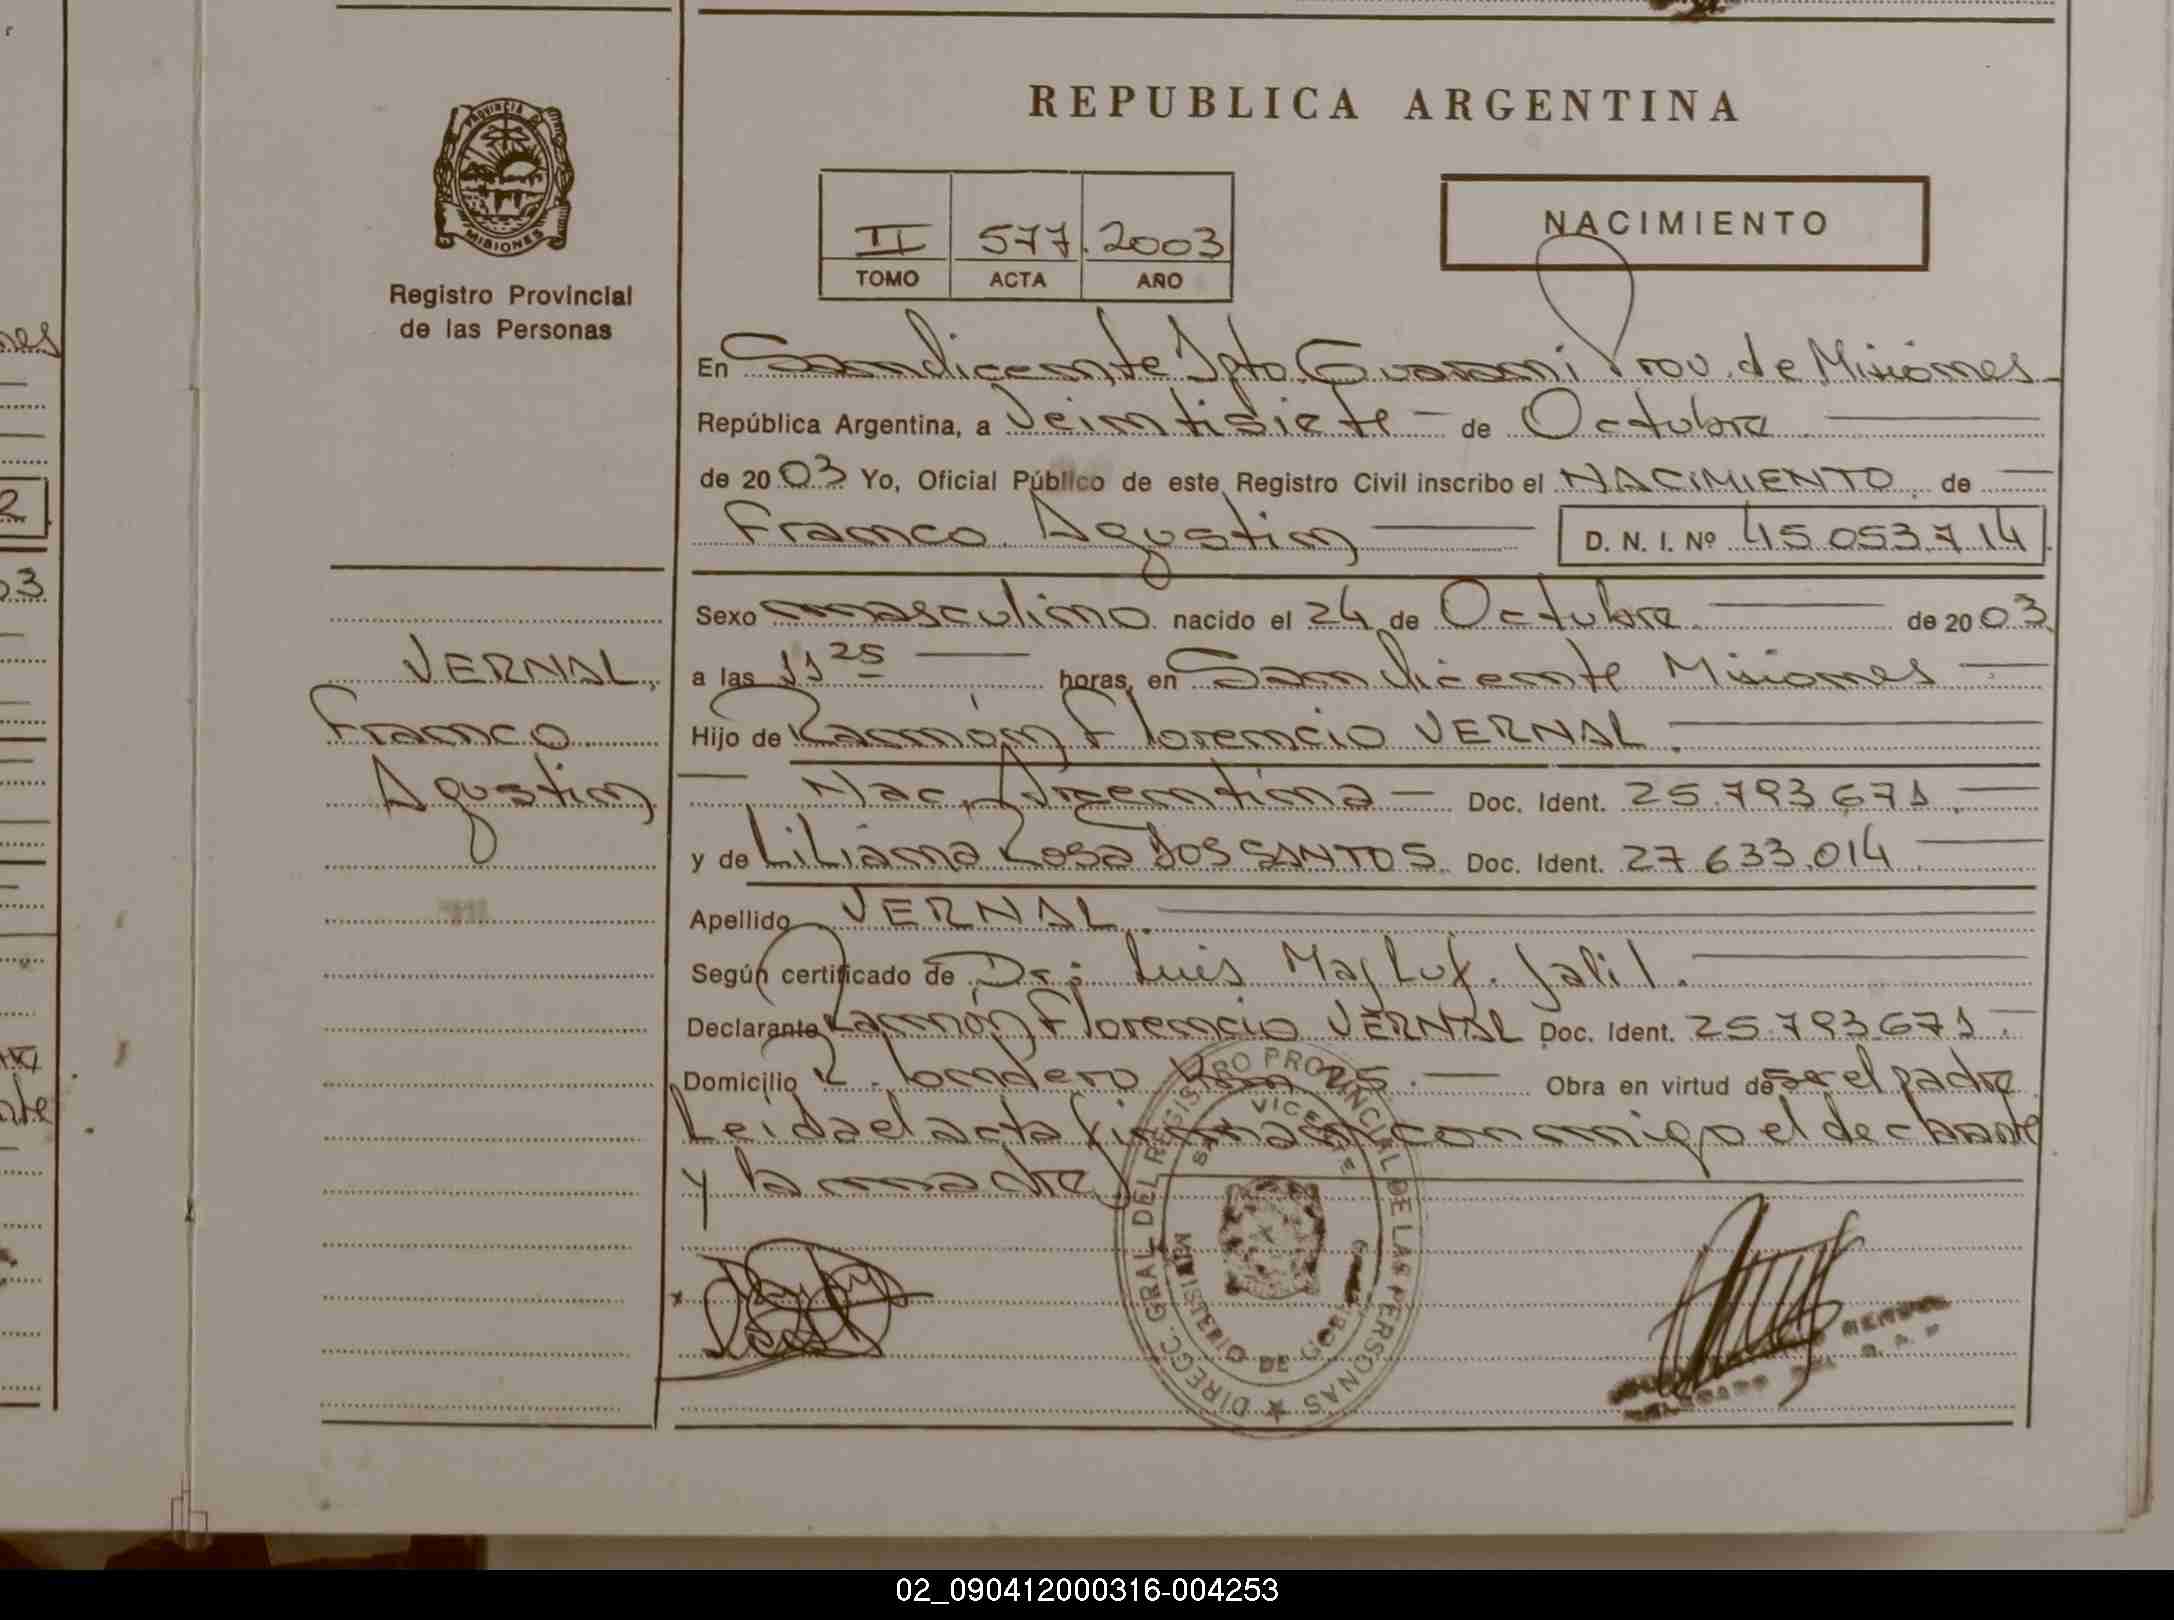 REPUBLICA ARGENTINA
PROVINCIA DE MISIONES
Registro Provincial
de las Personas
II 577 2003
TOMO ACTA AÑO
NACIMIENTO
En San Vicente Dpto Guarani Prov. de Misiones
República Argentina, a Veintisiete de Octubre
de 2003 Yo, Oficial Público de este Registro Civil inscribo el NACIMIENTO de
Franco Agustin D. N. I. Nº 45.053.714
Sexo masculino nacido el 24 de Octubre de 2003
VERNAL,
Franco
Agustin
a las 11 25 horas, en San Vicente Misiones
Hijo de Ramón Florencio VERNAL.
Nac. Argentina Doc. Ident. 25.793.671
y de Liliana Rosa DOS SANTOS. Doc. Ident. 27.633.014
Apellido VERNAL.
Según certificado de Dr: Luis Majluf. Jalil.
Declarante Ramón Florencio VERNAL Doc. Ident. 25.793.671.
Domicilio R. Londero Km 25. Obra en virtud de ser el padre
Leida el acta firman conmigo el declarante
y la madre
DIREC. GRAL. DEL REGISTRO PROVINCIAL DE LAS PERSONAS
SAN VICENTE
MINISTERIO DE GOBIERNO
02_090412000316-004253